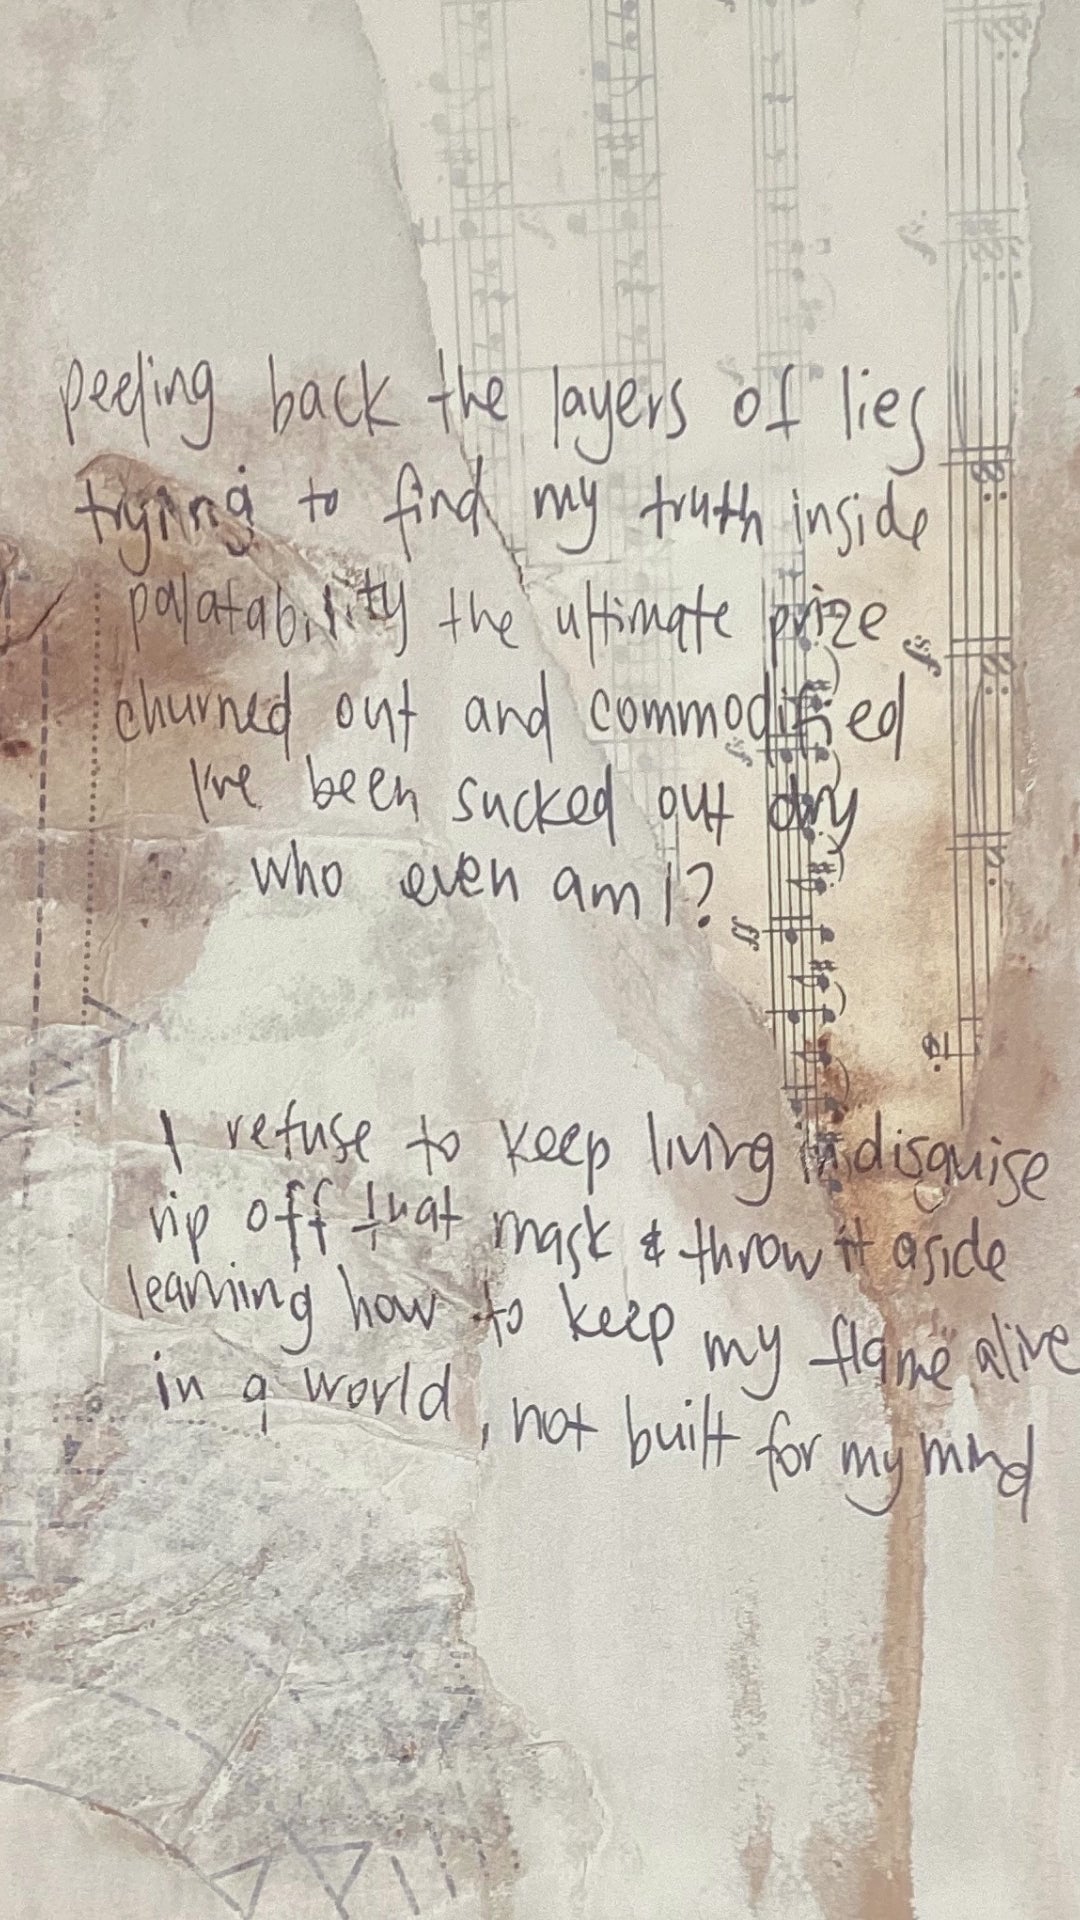 peeling back the layers of lies
trying to find my truth inside
palatability the ultimate prize
churned out and commodified
I've been sucked out dry
who even am I?
I refuse to keep living in disguise
rip off that mask & throw it aside
learning how to keep my flame alive
in a world, not built for my mind